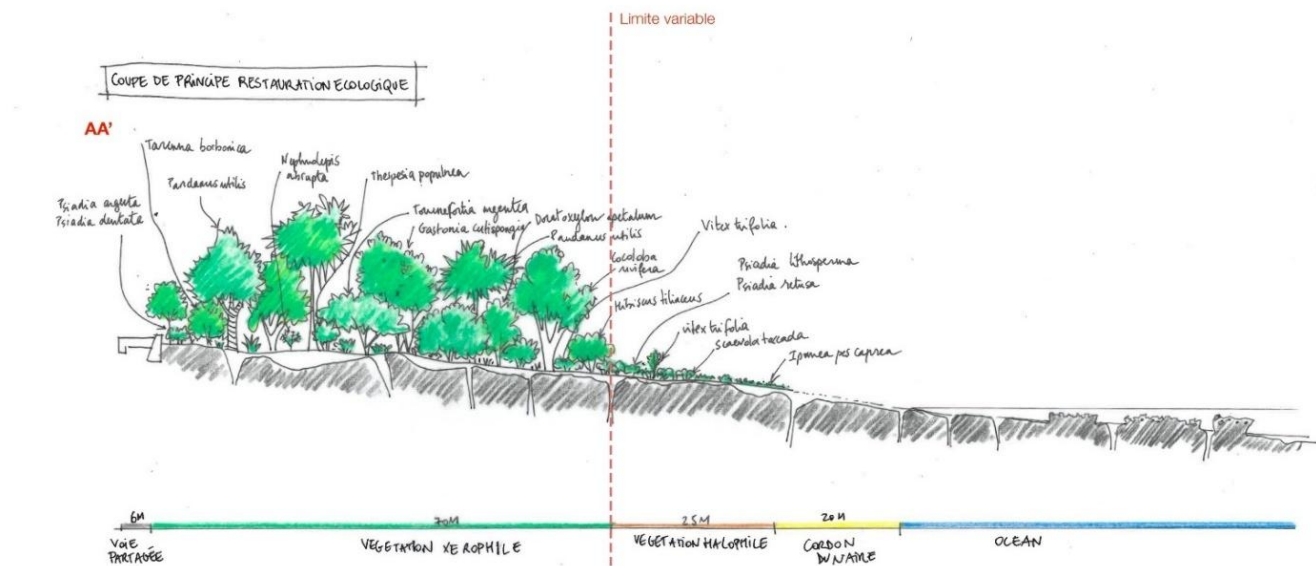 Limite variable
COUPE DE PRINCIPE RESTAURATION ECOLOGIQUE
AA'
Tarenna borbonica
Pandanus utilis
Psiadia arguta
Psiadia dentata
Nephrolepis
abrupta
Thespesia populnea
Tournefortia argentea
Gastonia cutispongia
Doratoxylon apetalum
Pandanus utilis
Cocoloba
uvifera
Hibiscus tiliaceus
Vitex trifolia.
Psiadia lithosperma
Psiadia retusa
vitex trifolia
scaevola taccada
Ipomea pes caprea
6M
70M
25M
20M
VOIE
PARTAGÉE
VEGETATION XEROPHILE
VEGETATION HALOPHILE
CORDON
DUNAIRE
OCEAN